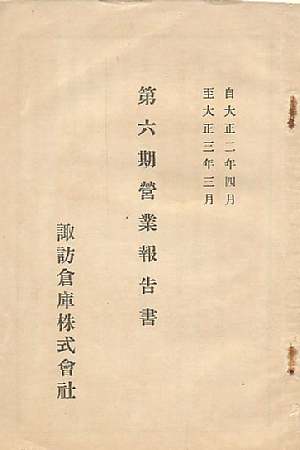 自大正二年四月
至大正三年三月
第六期營業報告書
諏訪倉庫株式會社